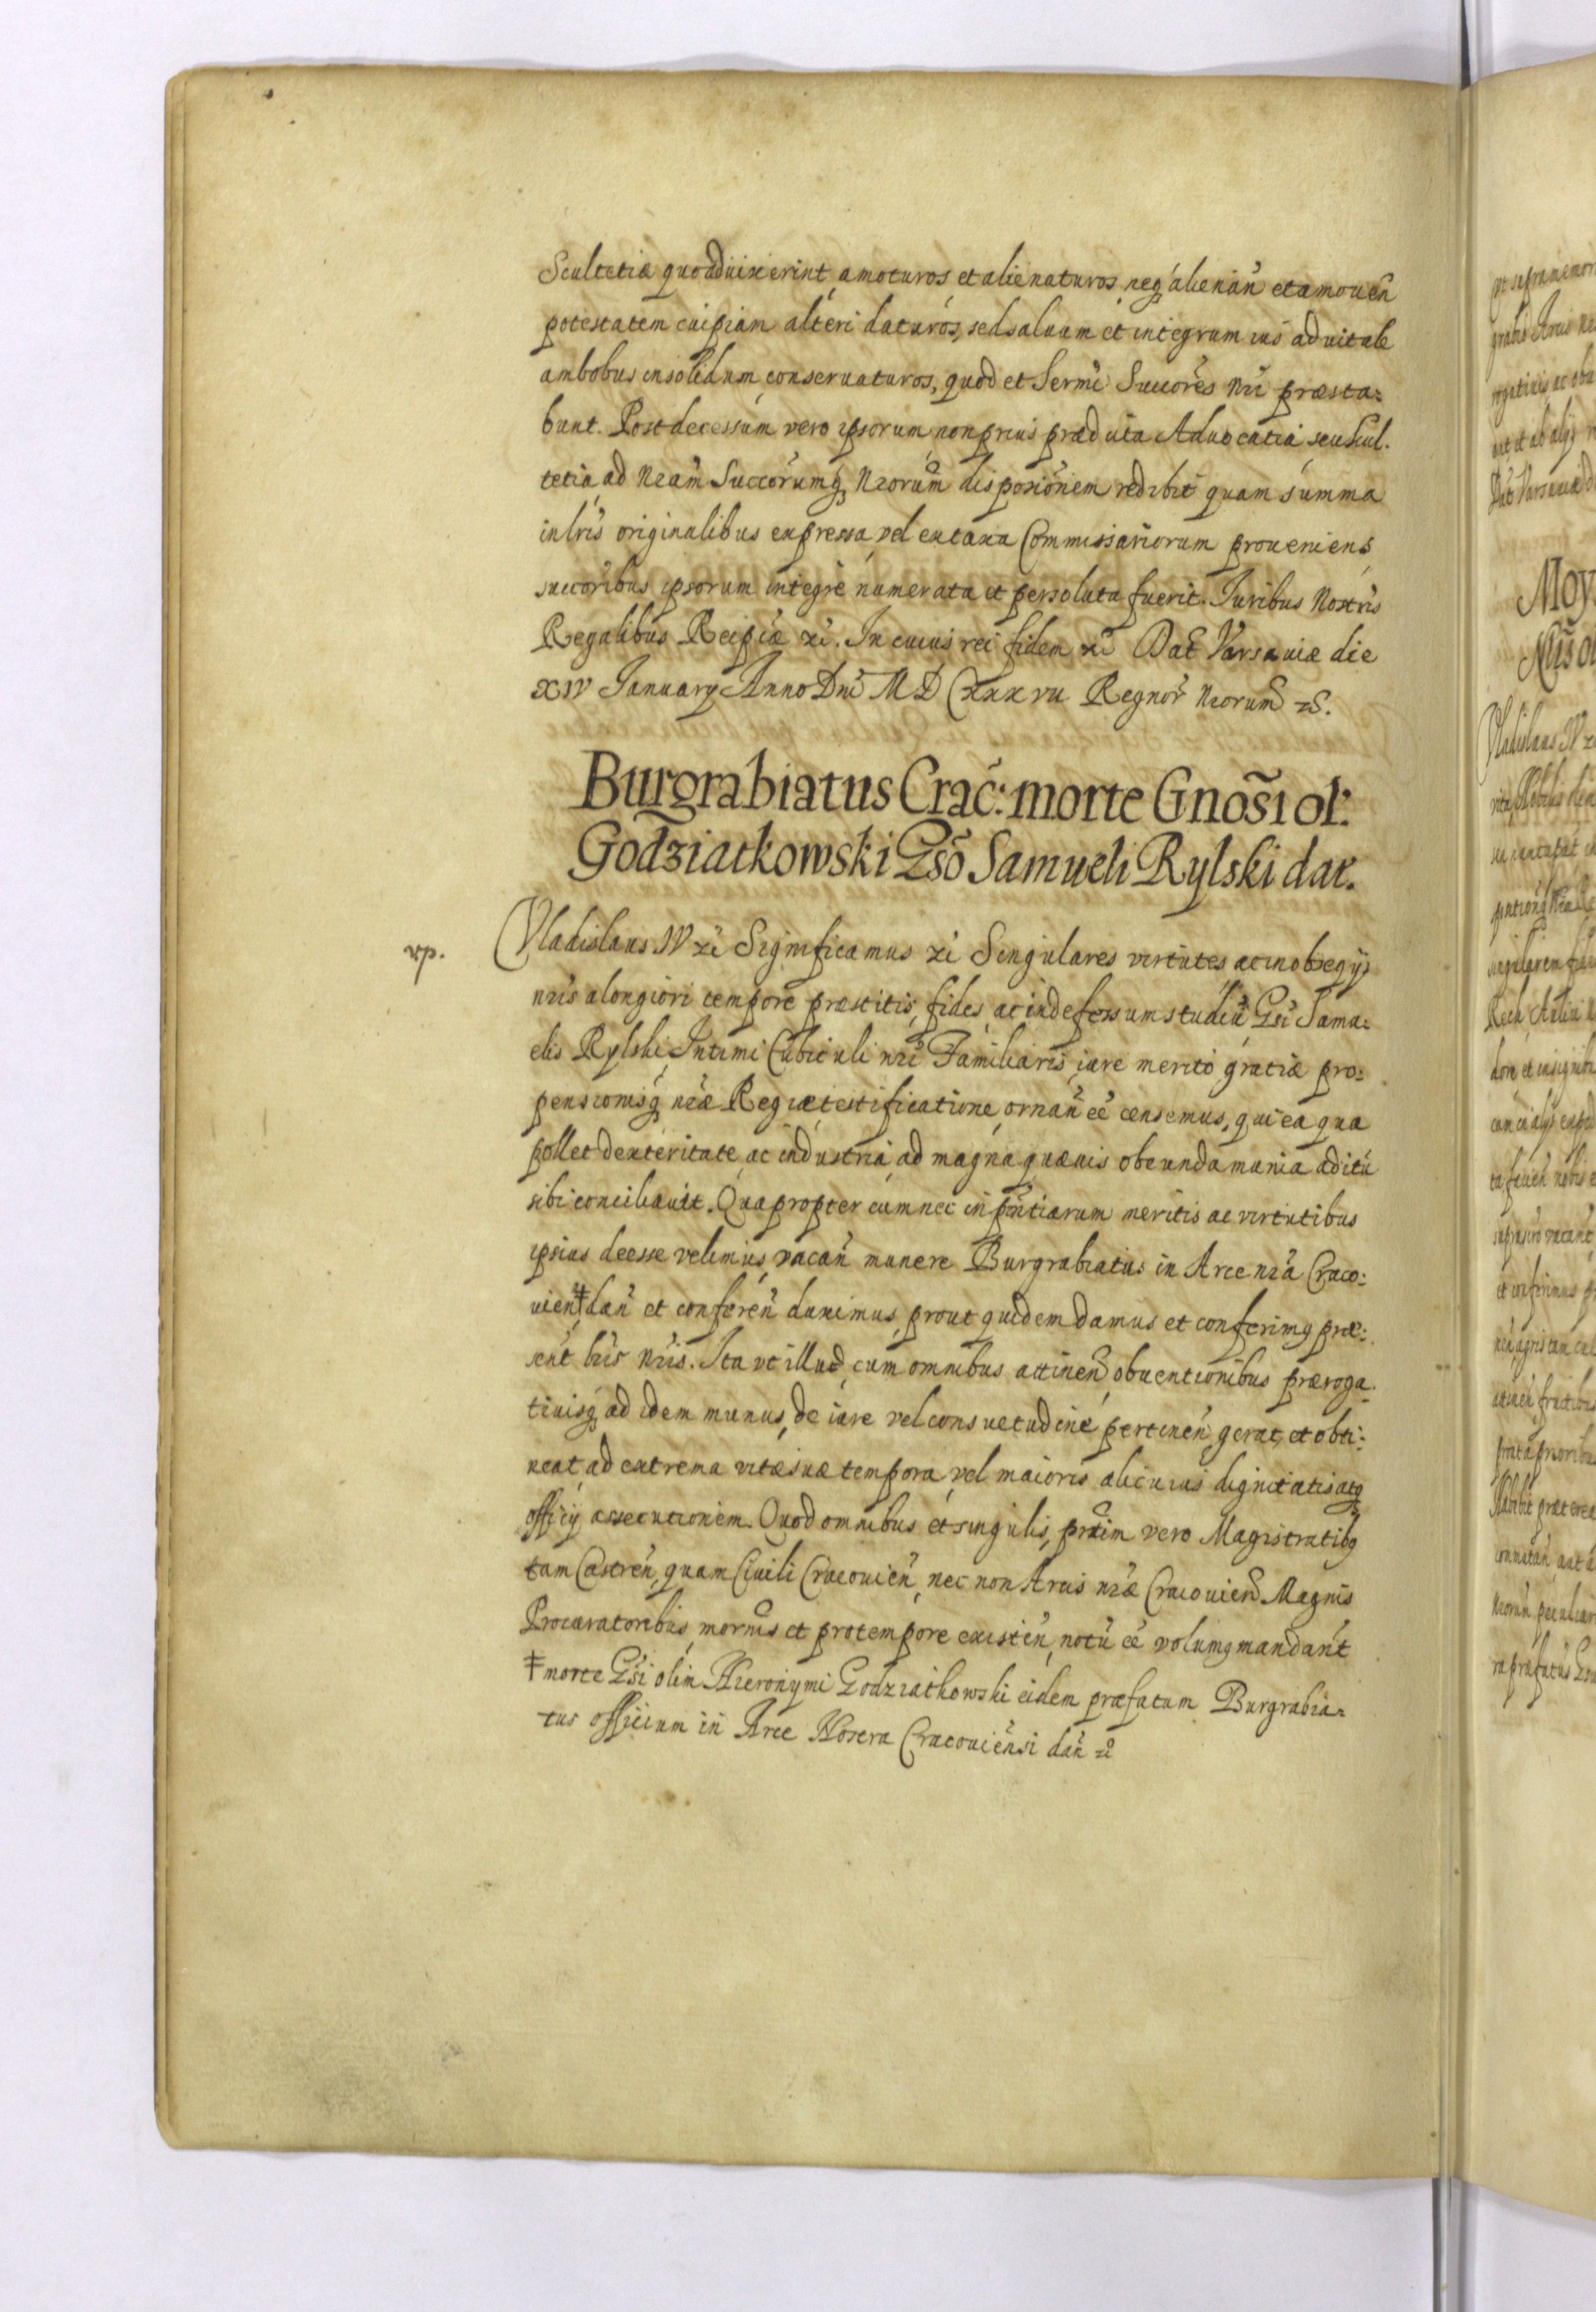 Scultetiæ quoad uixerint amoturos et alienaturos neq́ alienañ et amoueñ
potestatem cuipiam alteri daturos, sed saluum et integrum ius aduitale
ambobus insolidum conseruaturos, quod et Sermi Succores nri præsta:
bunt. Post decessum vero ipsorum non prius præducta Aduocatia seu Scul.
tetia ad nram Succorumq́ nrorum disposionem redibit quam summa
in lris originalibus expressa vel ex taxa Commissariorum proueniens
succoribus ipsorum integre numerata et persoluta fuerit. Iuribus nostris
Regalibus Reipcæ ɾc̃. In cuius rei fidem ɾc̃ Dat Varsauiæ die
XIV January Anno Dni M D CXXXVII Regnor nrorum ɾc.
Burgrabiatus Crac̃: morte Gnos̃i ol:
Godziatkowski Gso Samueli Rylski dat.
vp. Vladislaus IV ɾc̃ Significamus ɾc̃ Singulares virtutes ac in obsequijs
nris a longiori tempore præstitis, fides, ac indefessum studiũ Gsi Samu:
elis Rylski Intimi Cubiculi nri Familiaris iure merito gratiæ pro:
pensionisq́ nræ Regiæ testificatione ornañ eẽ censemus, qui ea qua
pollet dexteritate ac industria ad magna quæuis obeunda munia aditũ
sibi conciliauit. Quapropter cum nec in pñtiarum meritis ac virtutibus
ipsius deesse velimus vacañ munere Burgrabiatus in Arce nra Craco:
uieñ ‡ dañ et confereñ duximus, prout quidem damus et conferimq præ:
sent lris nris. Ita vt illud cum omnibus attineñ obuentionibus præroga.
tiuisq́ ad idem munus, de iure vel consuetudine pertineñ gerat, et obti:
neat ad extrema vitæ suæ tempora, vel maioris alicuius dignitatis atq́
officij assecutionem. Quod omnibus et singulis, prtim vero Magistratibq
tam Castreñ, quam Ciuili Cracouieñ, nec non Arcis nræ Cracouieñ Magnis
Procuratoribus, mornis et pro tempore existeñ notũ eẽ volumq mandañt
‡ morte Gsi olim Hieronymi Godziatkowski eidem præfatum Burgrabia:
tus officium in Arce Nostra Cracouiensi dañ ɾc̃